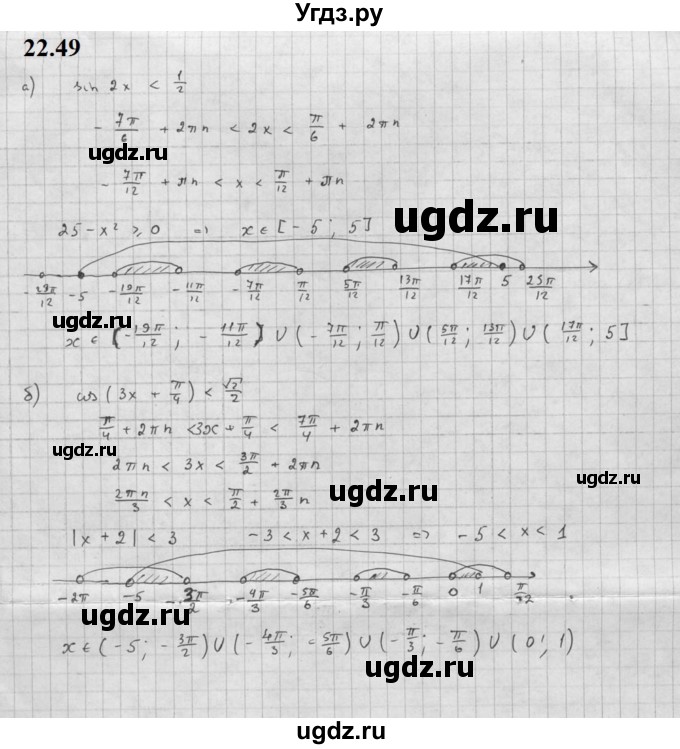 Угоз.ру
22.49
а) sin 2x < 1/2
- 7π/6 + 2πn < 2x < π/6 + 2πn
ugdz.ru
- 7π/12 + πn < x < π/12 + πn
ugdz.ru
25 - x² ⩾ 0 ⇒ x ∈ [-5 ; 5]
-29π/12 -5 -19π/12 -11π/12 -7π/12 π/12 5π/12 13π/12 17π/12 5 25π/12
x ∈ (-19π/12 ; -11π/12) ∪ (-7π/12 ; π/12) ∪ (5π/12 ; 13π/12) ∪ (17π/12 ; 5]
б) cos (3x + π/4) < √2/2
π/4 + 2πn < 3x + π/4 < 7π/4 + 2πn
ugdz.ru
2πn < 3x < 3π/2 + 2πn
ugdz.ru
ugdz.ru
2πn/3 < x < π/2 + 2π/3 n
|x + 2| < 3 -3 < x + 2 < 3 ⇒ -5 < x < 1
-2π -5 -3π/2 -4π/3 -5π/6 -π/3 -π/6 0 1 π/2
ugdz.ru
x ∈ (-5 ; -3π/2) ∪ (-4π/3 ; -5π/6) ∪ (-π/3 ; -π/6) ∪ (0 ; 1)
ugdz.ru
ugdz.ru